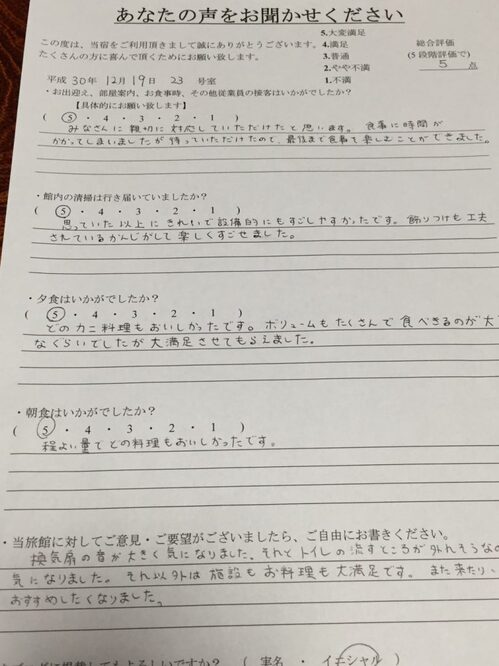 あなたの声をお聞かせください
この度は、当宿をご利用頂きまして誠にありがとうございます。
たくさんの方に喜んで頂くためにお願い致します。
5.大変満足
4.満足
3.普通
2.やや不満
1.不満
総合評価
(5段階評価で)
5 点
平成 30年 12月 19日 23 号室
・お出迎え、部屋案内、お食事時、その他従業員の接客はいかがでしたか?
【具体的にお願い致します】
( 5 ・ 4 ・ 3 ・ 2 ・ 1 )
みなさんに親切に対応していただけたと思います。食事に時間が
かかってしまいましたが待っていただけたので、最後まで食事を楽しむことができました。
・館内の清掃は行き届いていましたか?
( 5 ・ 4 ・ 3 ・ 2 ・ 1 )
思っていた以上にきれいで設備的にもすごしやすかったです。飾りつけも工夫
されているかんじがして楽しくすごせました。
・夕食はいかがでしたか?
( 5 ・ 4 ・ 3 ・ 2 ・ 1 )
どのカニ料理もおいしかったです。ボリュームもたくさんで食べきるのが大
なくらいでしたが大満足させてもらえました。
・朝食はいかがでしたか?
( 5 ・ 4 ・ 3 ・ 2 ・ 1 )
程よい量でどの料理もおいしかったです。
・当旅館に対してご意見・ご要望がございましたら、ご自由にお書きください。
換気扇の音が大きく気になりました、それとトイレの流すところが外れそうなの
気になりました。それ以外は施設もお料理も大満足です。また来たり、
おすすめしたくなりました。
に掲載してもよろしいですか? ( 実名 ・ イニシャル )